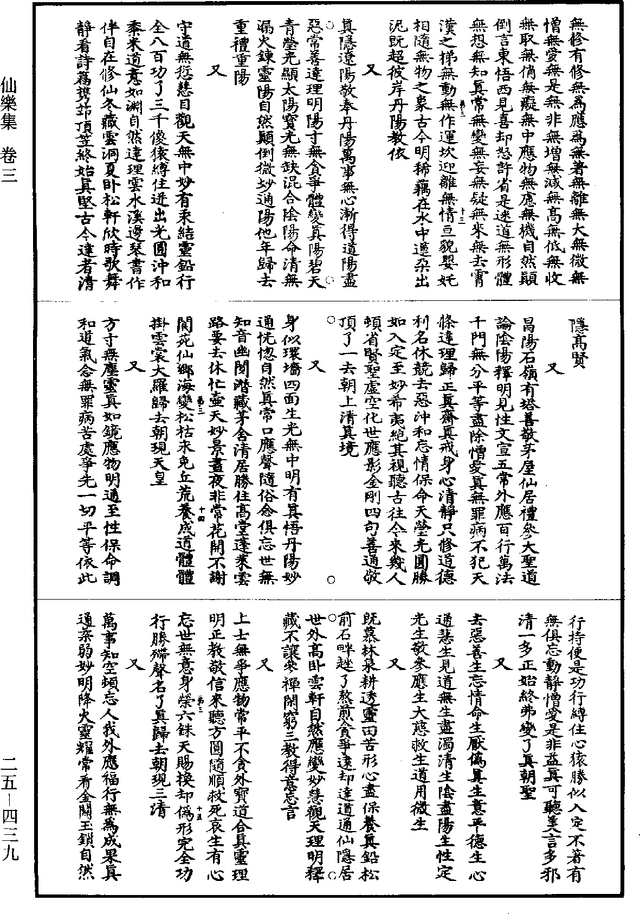 仙樂集 卷三
二五—四三九
無修有修無為應為無著無離無大無微無
憎無愛無是無非無增無減無高無低無收
無取無俏無癡無中應物無應無機自然顛
倒言東悟西見喜却怒許省是迷道無形體
無想無知真常無變無妄無疑無來無去霄
漢之梯無動無作運坎迎離無情亘貌嬰妊
相隨無物之象古今明稀藕在水中蓮朵出
泥既超彼岸丹陽教依
又
真隱遼陽敬奉丹陽萬事無心漸得道陽盡
惡常善達理明陽寸無食爭體變真陽碧天
青瑩光顯太陽寶光無缺混合陰陽命清無
漏火鍊靈陽自然顛倒微妙通陽他年歸去
重禮重陽
又
守道無愆慧目觀天無中妙有束結靈鉛行
全八百功了三千傻猿縛住迸出光圓沖和
黍米道意如淵自然達理雲水溪邊琴書作
伴自在修仙冬藏雲洞夏卧松軒欣時歌舞
靜看詩篇携筇頂笠終始真堅古今達者清
隱高賢
又
昌陽石嶺有塔善敬茅屋仙居禮參大聖道
論陰陽釋明見性文宣五常外應百行萬法
千門無分平等盡除憎愛真無罪病不犯天
條達理歸正真齋真戒身心清靜只修道德
利名休競去惡沖和忘情保命天瑩光圓勝
如入定至妙希夷絕其視聽古往今來幾人
頓省賢聖虛空化世應影金剛四句善通敬
頂了一去朝上清真境
又
身似環墻四面生光無中明有真悟丹陽妙
通恍惚自然真常口應聲隨俗念俱忘世無
知音幽閑潛藏茅舍清居勝住高堂蓬萊雲
路要去休忙壺天妙景晝夜非常花開不謝
閬苑仙鄉海變松枯未兔丘荒養成道體體
掛雲裳大羅歸去朝現天皇
又
方寸無塵靈真如鏡應物明通至性保命調
和道氣念無罪病苦處爭先一切平等依此
行持便是功行縛住心猿勝似入定不著有
無俱忘動靜憎愛是非並真可聽美言多邪
清一多正始終弗變了真朝聖
又
去惡善生忘情命生厭偽真生意平德生心
通慧生見道無生盡濁清生陰盡陽生性定
光生敬參應生大慈救生道用微生
又
既慕林泉耕透靈田苦形心盡保養真鉛松
前石畔趓了熬煎食爭遠却達道通仙隱居
世外高卧雲軒自然應變妙慧觀天理明釋
藏不讓參禪閑窮三教得意忘言
又
上士無爭應物常平不貪外寶道合真靈理
明正教敬信來聽方圓隨順救死哀生有心
忘世無意身榮六銖天賜換却偽形完全功
行勝殢聲名了真歸去朝現三清
又
萬事知空頓忘人我外應福行無為成果真
通柔弱妙明降火靈耀常看金關玉鎖自然